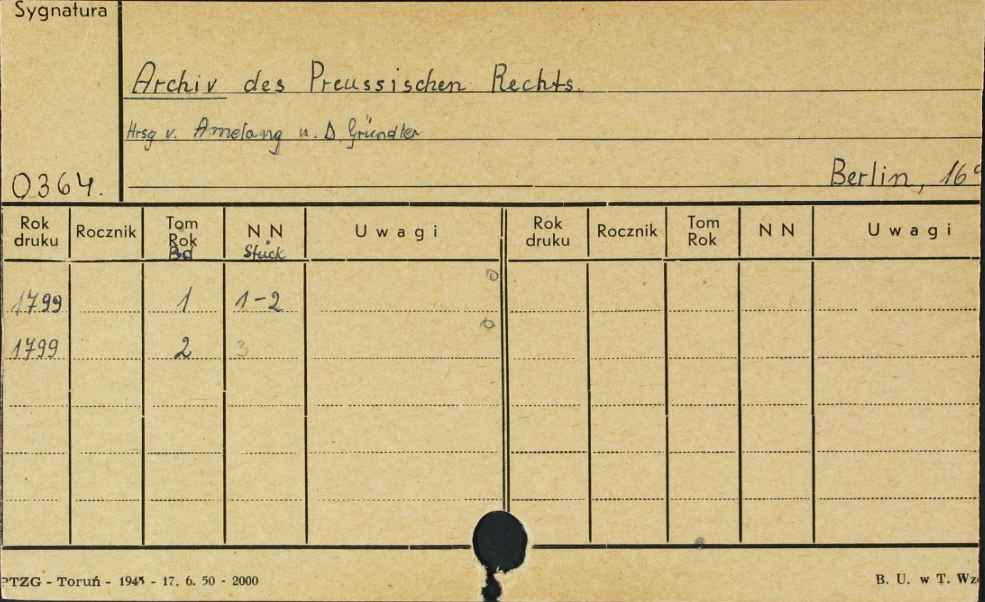 Sygnatura
Archiv des Preussischen Rechts.
Hrsg v. Amelang u. D. Gründler
0364.
Berlin, 16°
Rok druku Rocznik Tom Rok Bd NN Stück Uwagi Rok druku Rocznik Tom Rok NN Uwagi
1799 1 1-2
1799 2 3
PTZG - Toruń - 1945 - 17. 6. 50 - 2000
B. U. w T. Wz